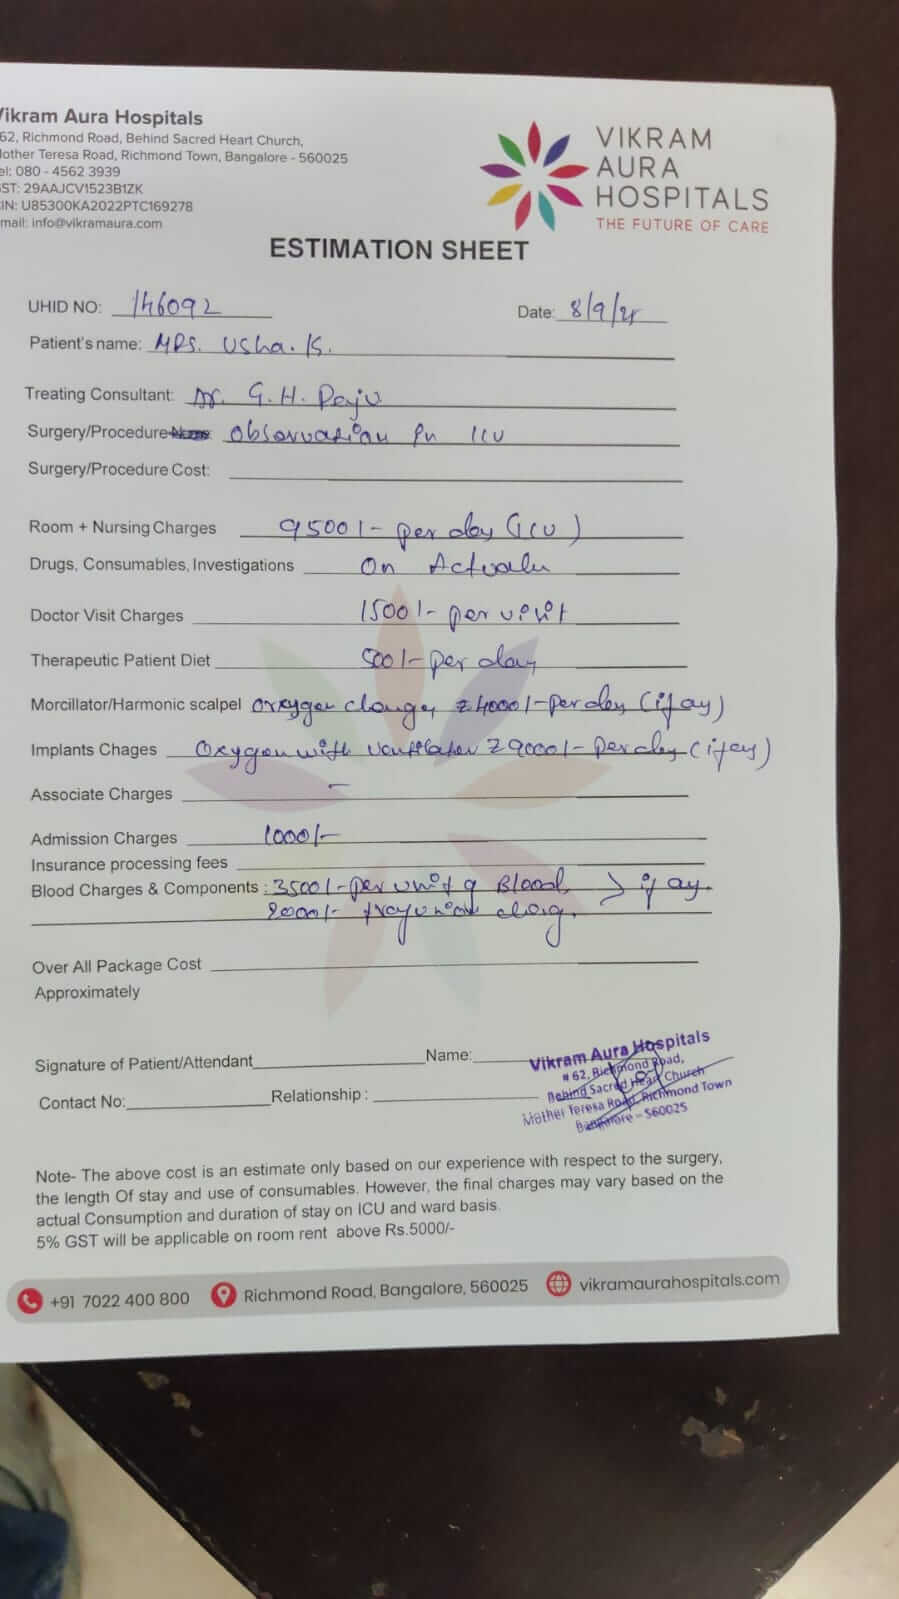 Vikram Aura Hospitals
62, Richmond Road, Behind Sacred Heart Church,
Mother Teresa Road, Richmond Town, Bangalore - 560025
el: 080 - 4562 3939
ST: 29AAJCV1523B1ZK
IN: U85300KA2022PTC169278
mail: info@vikramaura.com
VIKRAM
AURA
HOSPITALS
THE FUTURE OF CARE
ESTIMATION SHEET
UHID NO: 146092 Date: 8/9/25
Patient's name: MRS. Usha. K.
Treating Consultant: Dr. G.H. Raju
Surgery/Procedure Observation in ICU
Surgery/Procedure Cost:
Room + Nursing Charges 9500/- per day (ICU)
Drugs, Consumables, Investigations On Actuals
Doctor Visit Charges 1500/- per visit
Therapeutic Patient Diet 500/- per day
Morcillator/Harmonic scalpel Oxygen charges 4000/- per day (if any)
Implants Chages Oxygen with ventilator 9000/- per day (if any)
Associate Charges -
Admission Charges 1000/-
Insurance processing fees
Blood Charges & Components : 3500/- per unit of Blood > if any.
2000/-
Over All Package Cost
Approximately
Signature of Patient/Attendant Name:
Contact No: Relationship :
Vikram Aura Hospitals
# 62, Richmond Road,
Behind Sacred Heart Church
Mother Teresa Road, Richmond Town
Bangalore - 560025
Note- The above cost is an estimate only based on our experience with respect to the surgery,
the length Of stay and use of consumables. However, the final charges may vary based on the
actual Consumption and duration of stay on ICU and ward basis.
5% GST will be applicable on room rent above Rs.5000/-
+91 7022 400 800 Richmond Road, Bangalore, 560025 vikramaurahospitals.com